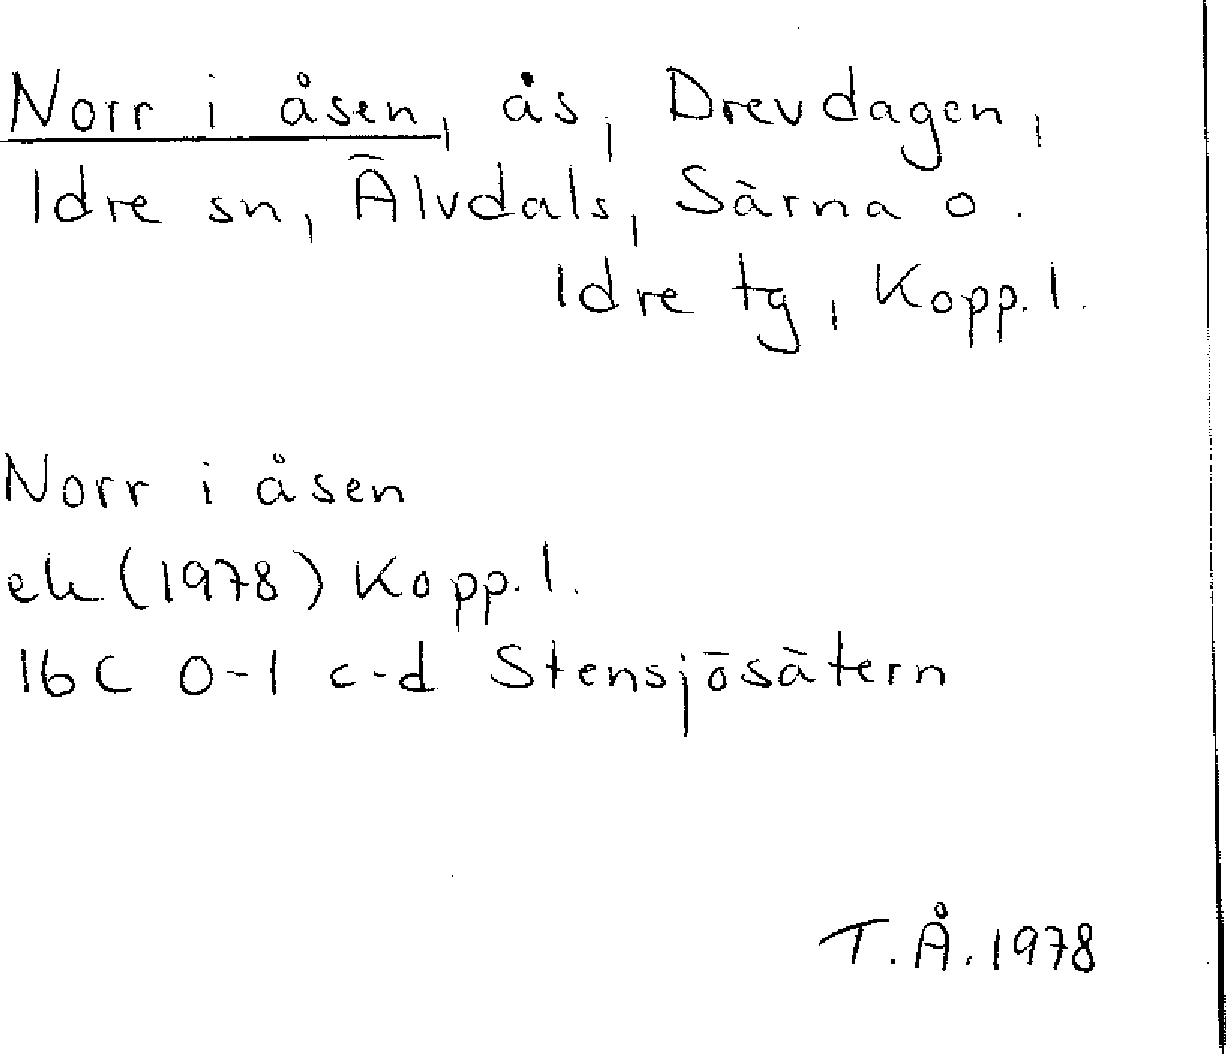 Norr i åsen, ås, Drevdagen,
Idre sn, Älvdals, Särna o.
Idre tg, Kopp. l.
Norr i åsen
ek (1978) Kopp. l.
16C 0-1 c-d Stensjösätern
T. Å. 1978